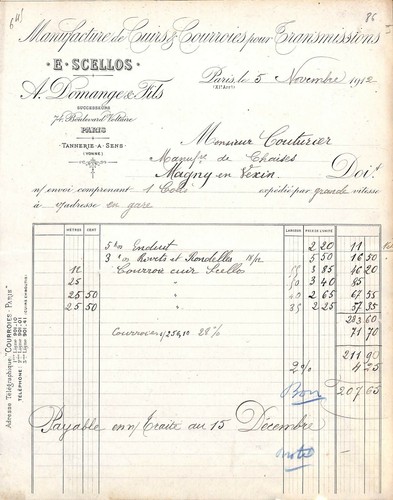 6 86
Manufacture de Cuirs & Courroies pour Transmissions
E. SCELLOS
A. Domange & Fils
SUCCESSEURS
74, Boulevard Voltaire
PARIS
TANNERIE A SENS
(YONNE)
Paris, le 5 Novembre 1912
(XIe Arrt)
Monsieur Couturier
Manufre de Chaises
Magny en Vexin Doit
n/ envoi comprenant 1 Colis expédié par grande vitesse
à adresse en gare
MÈTRES CENT LARGEUR PRIX DE L'UNITÉ
5 Enduit 2 20 11
3 Rivets et Rondelles 5 50 16 50
12 Courroie cuir Scellos 3 85 46 20
25 " 3 40 85
25 50 " 40 2 65 67 55
25 50 " 35 2 25 57 35
283 60
Courroies s/256,10 28% 71 70
211 90
2% 4 25
Bon 207 65
Payable en n/ Traite au 15 Décembre
noté
Adresse Télégraphique "COURROIES-PARIS"
TÉLÉPHONE